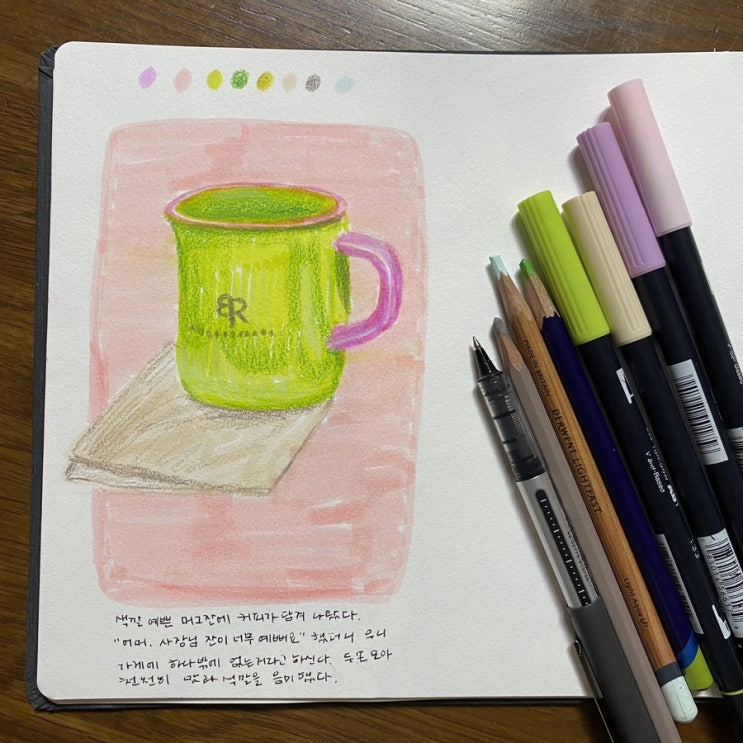 BR
색깔 예쁜 머그잔에 커피가 담겨 나왔다.
"어머. 사장님 잔이 너무 예뻐요" 했더니 우리
가게에 하나밖에 없는거라고 하신다. 두 손 모아
천천히 맛과 색깔을 음미했다.
MADE IN BRITAIN
DERWENT LIGHTFAST
Light Aqua